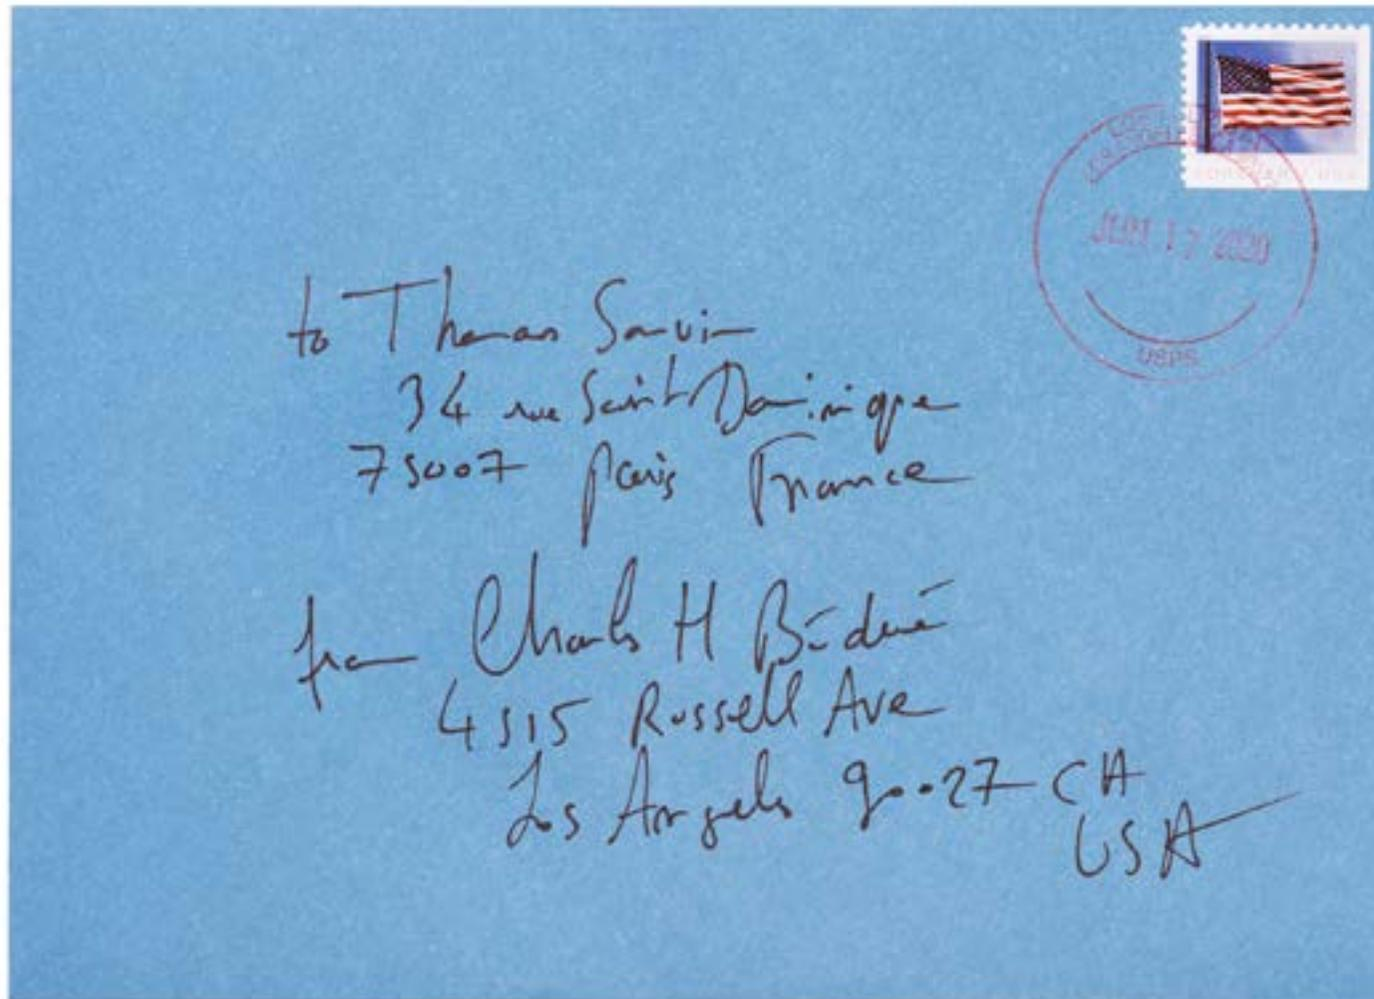 JUN 17 2020
USPS
to Thomas Sauvin
34 rue Saint Dominique
75007 Paris France
from Charles H
4515 Russell Ave
Los Angeles 90027 CA
USA